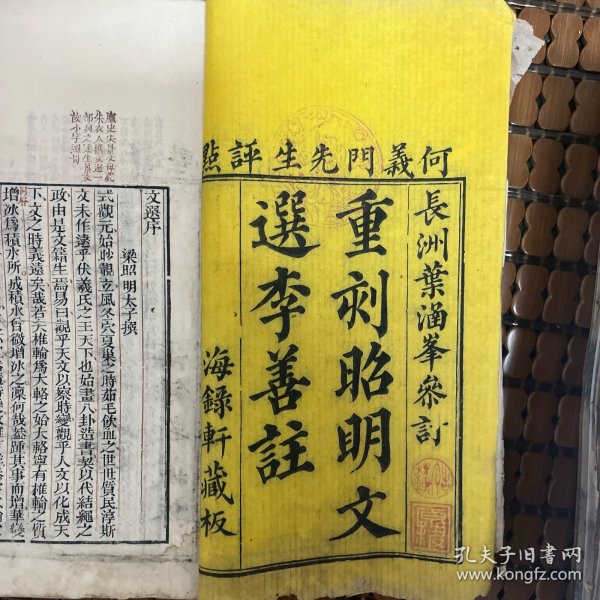 何義門先生評點
長洲葉涵峯參訂
重刻昭明文
選李善註
海錄軒藏板
文選序
梁昭明太子撰
式觀元始眇覿玄風冬穴夏巢之時茹毛飲血之世世質民淳斯
文未作逮乎伏羲氏之王天下也始畫八卦造書契以代結繩之
政由是文籍生焉易曰觀乎天文以察時變觀乎人文以化成天
下文之時義遠矣哉若夫椎輪爲大輅之始大輅寧有椎輪之質
增冰爲積水所成積水曾微增冰之凜何哉蓋踵其事而增華變
孔夫子旧書网
www.kongfz.com